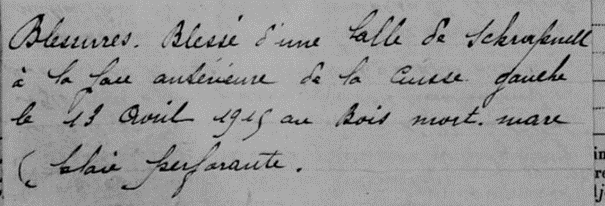 Blessures. Blessé d'une balle de Schrapnell
à la face antérieure de la cuisse gauche
le 13 Avril 1915 au Bois mort-mare
( plaie perforante.